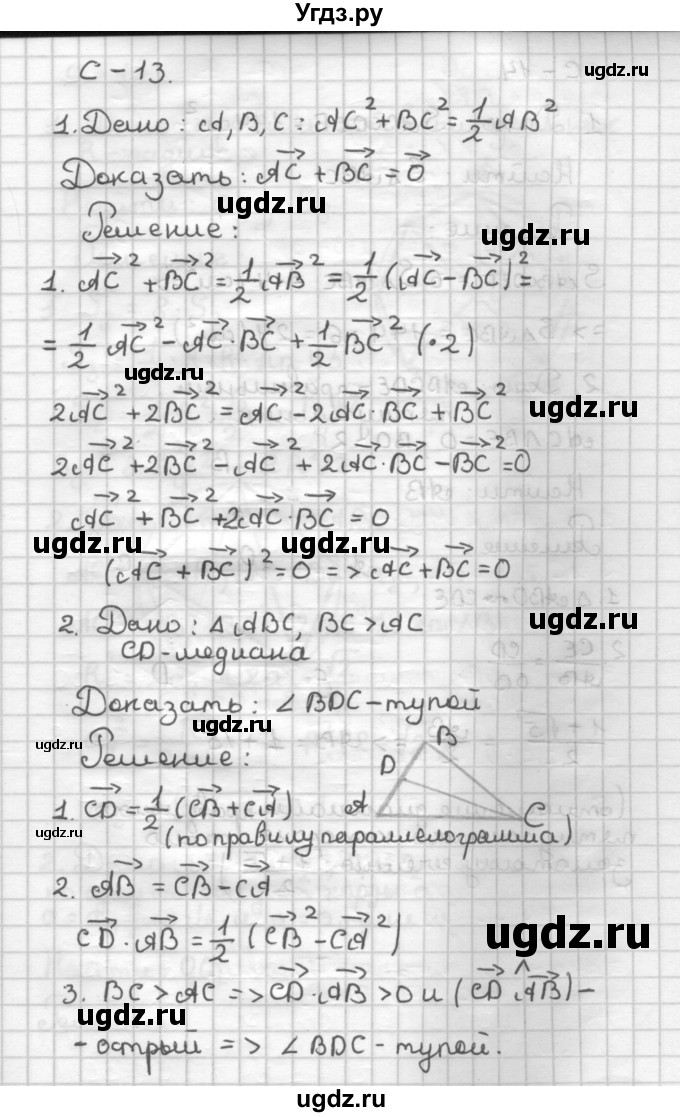 Угдз.ру
С - 13.
ugdz.ru
1. Дано: A, B, C: AC² + BC² = 1/2 AB²
Доказать: AC→ + BC→ = 0→
ugdz.ru
Решение:
ugdz.ru
1. AC→² + BC→² = 1/2 AB→² = 1/2 (AC→ - BC→)² =
= 1/2 AC→² - AC→ · BC→ + 1/2 BC→² (·2)
ugdz.ru
2AC→² + 2BC→² = AC→ - 2AC→ · BC→ + BC→²
ugdz.ru
2AC→² + 2BC→² - AC→² + 2AC→ · BC→ - BC→² = 0
AC→² + BC→² + 2AC→ · BC→ = 0
ugdz.ru
ugdz.ru
(AC→ + BC→)² = 0 => AC→ + BC→ = 0
2. Дано: △ABC, BC > AC
CD - медиана
Доказать: ∠BDC - тупой
ugdz.ru
ugdz.ru
Решение:
B
D
A
C
1. CD→ = 1/2 (CB→ + CA→)
ugdz.ru
(по правилу параллелограмма)
2. AB→ = CB→ - CA→
CD→ · AB→ = 1/2 (CB→² - CA→²)
ugdz.ru
3. BC > AC => CD→ · AB→ > 0 и (CD→ ^ AB→) -
ugdz.ru
- острый => ∠BDC - тупой.
ugdz.ru
ugdz.ru